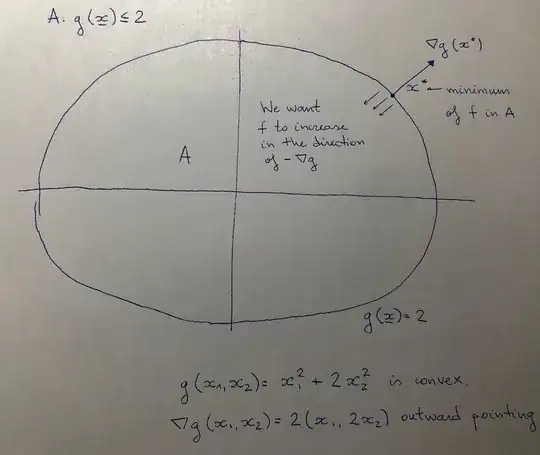 A: g(x) ≤ 2
∇g(x*)
x* ← minimum
of f in A
We want
f to increase
in the direction
of -∇g
A
g(x)=2
g(x₁,x₂)= x₁² + 2x₂² is convex.
∇g(x₁,x₂)=2(x₁, 2x₂) outward pointing